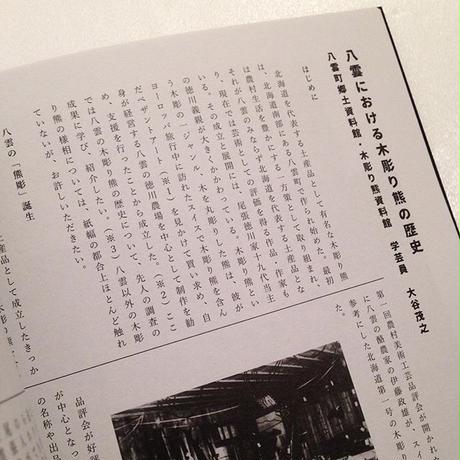 八雲における木彫り熊の歴史
八雲町郷土資料館・木彫り熊資料館 学芸員 大谷茂之
はじめに
北海道を代表する土産品として有名な木彫り熊
は、北海道南部にある八雲町で作られ始めた。最初
は農村生活を豊かにする一方策として取り組まれ、
それが八雲のみならず北海道を代表する土産品とな
り、現在では芸術としての評価を得る作品、作家も
いる。その成立と展開には、尾張徳川家十九代当主
の徳川義親が大きくかかわっている。木彫り熊とい
う木彫の一ジャンル、木を丸彫りした熊は、彼が
ヨーロッパ旅行中に訪れたスイスで木彫り熊を含ん
だペザントアート（※1）を見かけて買い求め、自
身が経営する八雲の徳川農場を中心として制作を勧
め、支援を行ったことから成立した。（※2）ここ
では八雲の木彫り熊の歴史について、先人の調査の
成果に学び、紹介したい。（※3）八雲以外の木彫
り熊の様相については、紙幅の都合上ほとんど触れ
ていないが、お許しいただきたい。
八雲の「熊彫」誕生
土産品として成立したきっか
た。
第一回農村美術工芸品評会が開かれた
に八雲の酪農家の伊藤政雄が、スイ
参考にした北海道第一号の木彫り
品評会が好評
が中心となっ
の名称や出品